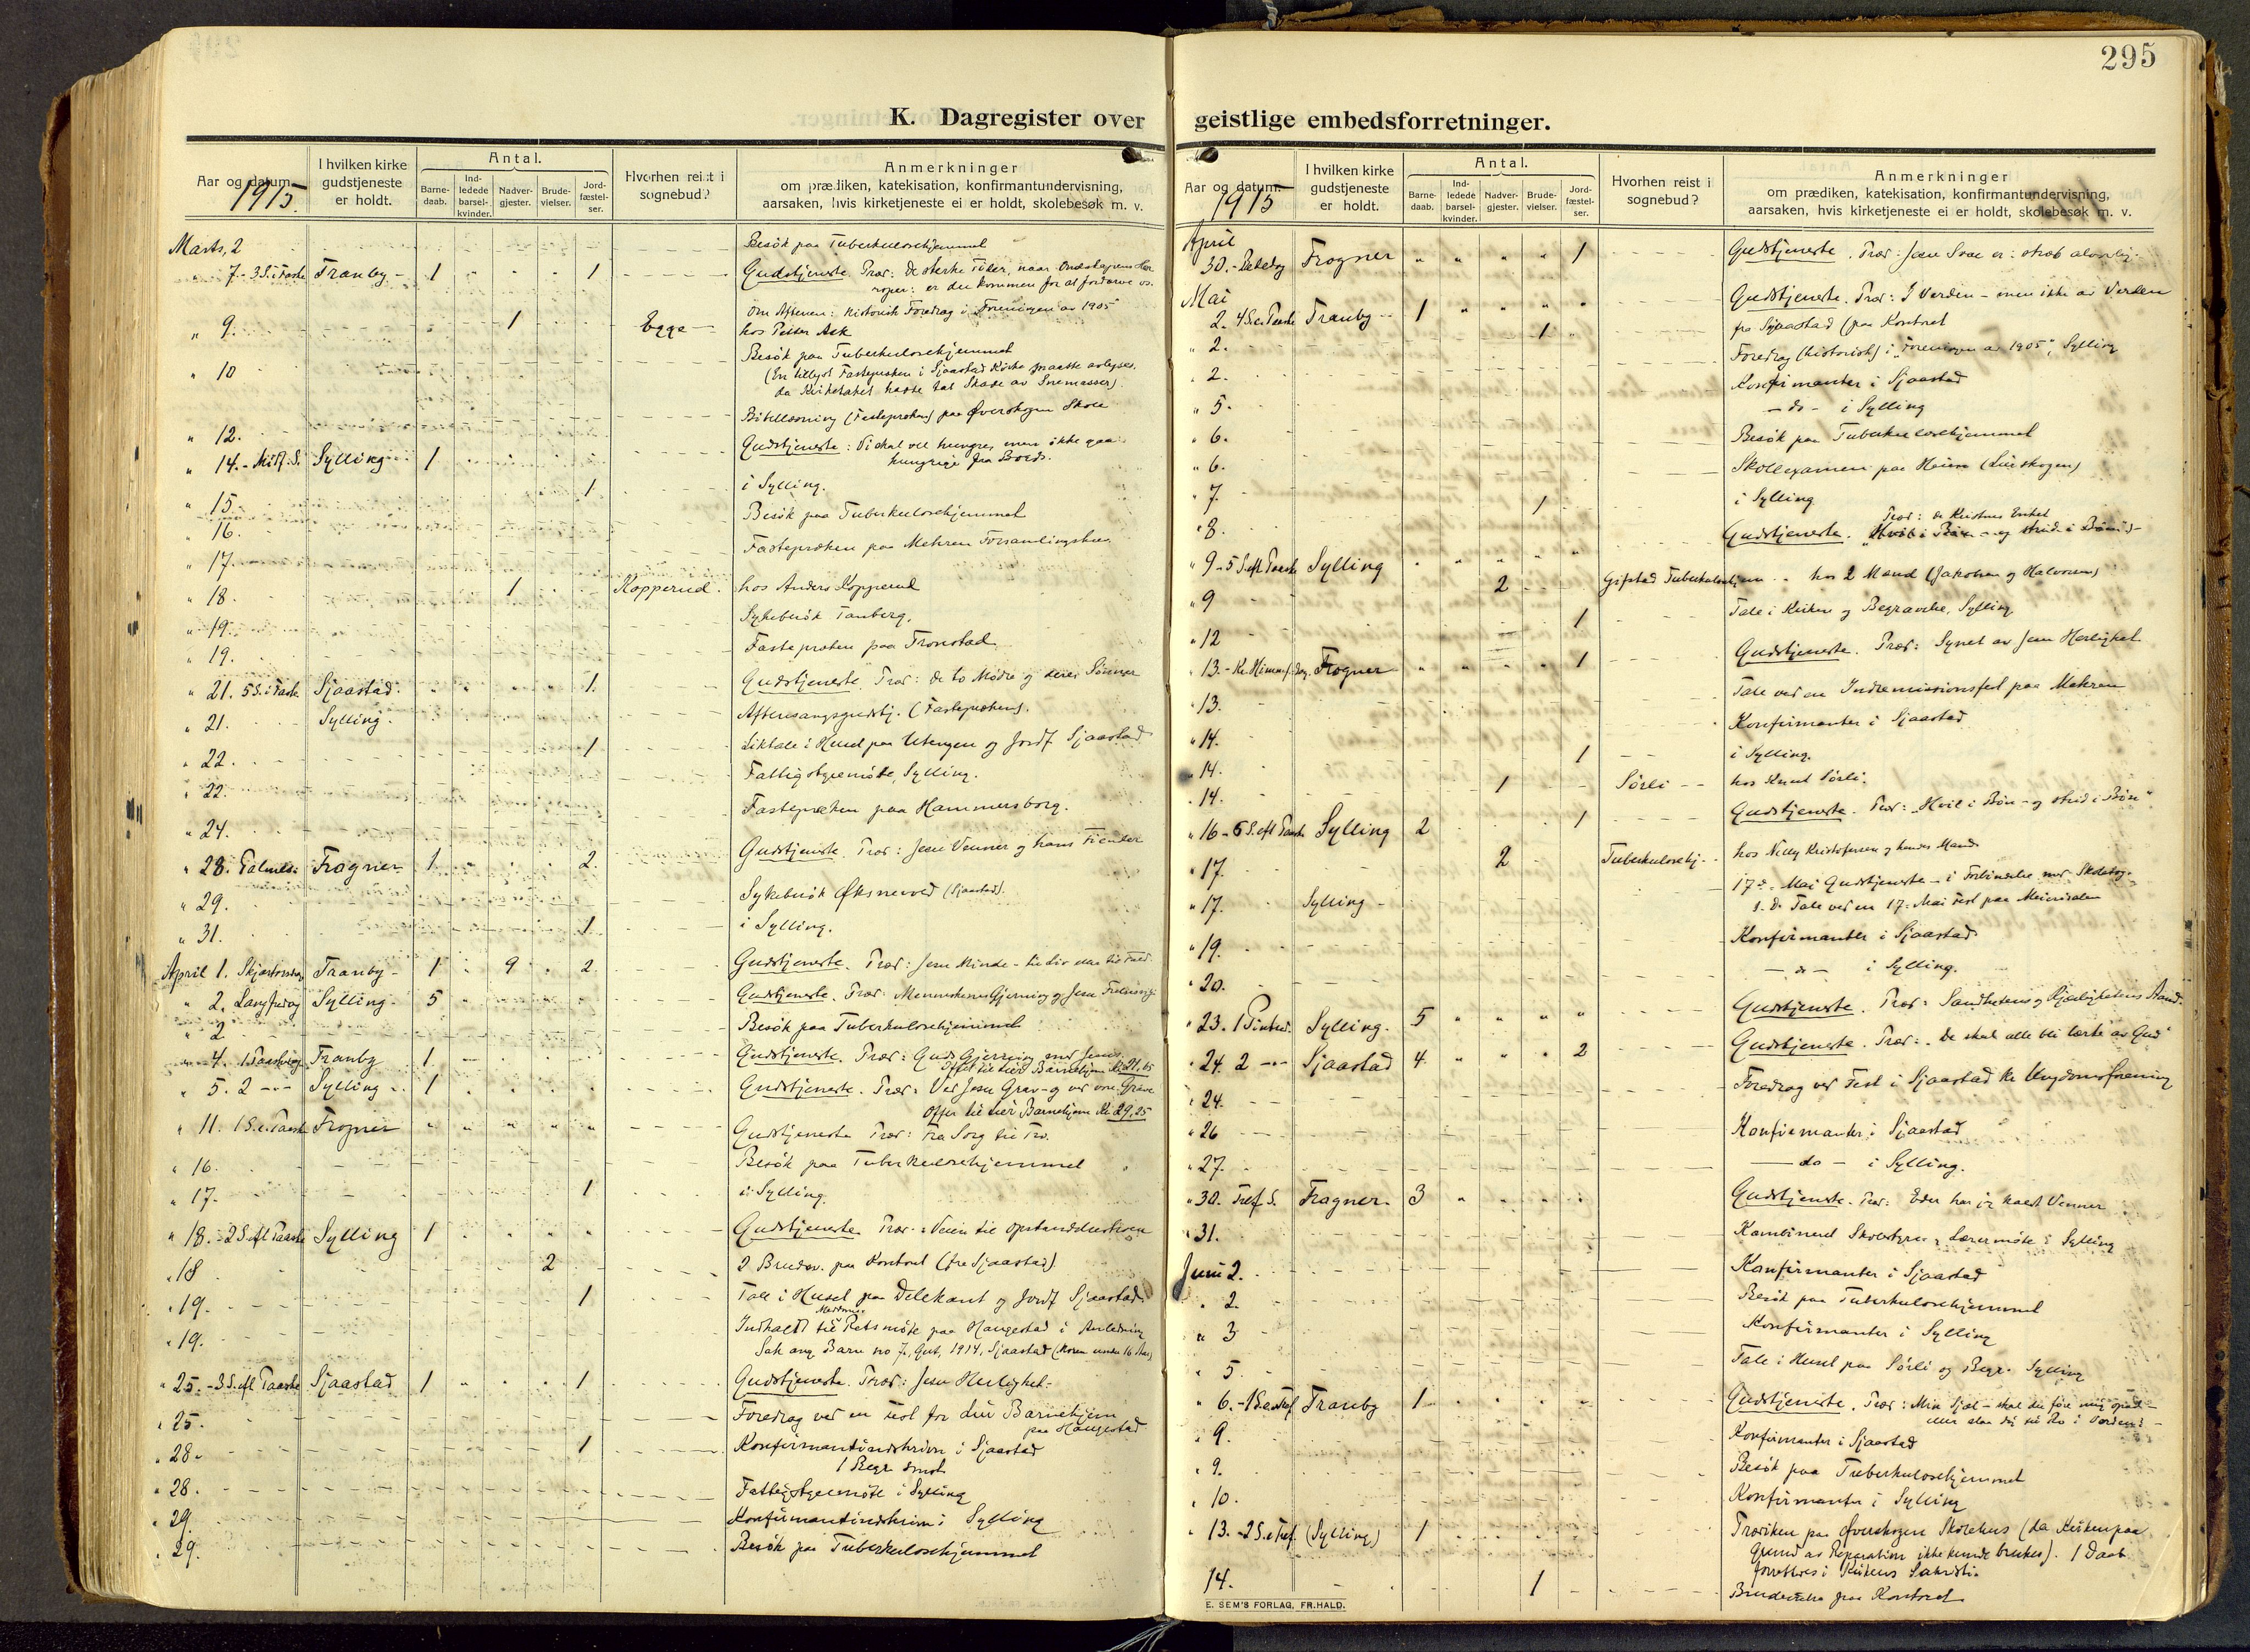 295
K. Dagregister over geistlige embedsforretninger.
Aar og datum.
1915.
I hvilken kirke gudstjeneste er holdt.
Antal.
Barne-daab.
Ind-ledede barsel-kvinder.
Nadver-gjester.
Brude-vielser.
Jord-fæstel-ser.
Hvorhen reist i sognebud?
Anmerkninger
om prædiken, katekisation, konfirmantundervisning,
aarsaken, hvis kirketjeneste ei er holdt, skolebesøk m. v.
Marts, 2 Besök paa Tuberkulosehjemmet
" 7. - 3 S. i Faste Tranby - 1 1 Gudstjeneste. Præd: De sterke Tider, naar
roper: er du kommen for at fordærve os.
Om Aftenen: historisk Foredrag i Foreningen av 1905
" 9. 1 Egge - hos Petter Ask
" 10 Besök paa Tuberkulosehjemmet
(En tillyst Fastepræken i Sjaastad Kirke maatte avlyses,
da Kirketaket hadde tat Skade av Snemasser).
" 12. Bibellæsning (Fastepræken) paa Øverskogen Skole
" 14. - Midf. S. Sylling 1 Gudstjeneste: Vi skal vel hungre, men ikke gaa
hungrige fra Bords.
" 15. 1 i Sylling.
" 16. Besök paa Tuberkulosehjemmet
" 17. Fastepræken paa Mehren Forsamlingshus
" 18. 1 Kopperud. hos Anders Kopperud
" 19. Sykebesök Tanberg.
" 19. Fastepræken paa Tronstad
" 21. 5 S. i Faste Sjaastad. 1. Gudstjeneste. Præd: de to Mødre og deres Sönner
" 21. Sylling. Aftensangsgudstj. (Fastepræken).
" 22. 1 Liktale i Huset paa Utengen og Jordf Sjaastad
" 22. Fattigstyremöte, Sylling.
" 24. Fastepræken paa Hammersborg.
" 28. Palmes. Frogner 1. 2. Gudstjeneste. Præd: Jesu Venner og hans Fiender
" 29. Sykebesök Øksnevad (Sjaastad).
" 31. 1 i Sylling.
April 1. Skjærtorsdag Tranby - 1 9 2. Gudstjeneste. Præd: Jesu Minde - til Liv eller til Fald.
" 2. Langfredag Sylling. 5 Gudstjeneste. Præd: Menneskenes Gjerning og Jesu
" 2 Besök paa Tuberkulosehjemmet
" 4. 1 Paaskedag Tranby 1. Gudstjeneste. Præd: Guds Gjerning med Jesus.
Offer til Lier Barnehjem Kr 21,65
" 5. 2 -"- Sylling 1 Gudstjeneste. Præd: Ved Jesu Grav - og ved vore Grave
Offer til Lier Barnehjem Kr 29,25
" 11. 1 S. e. Paaske Frogner Gudstjeneste Præd: Fra Sorg til Tro.
" 16. Besök paa Tuberkulosehjemmet
" 17. 1 i Sylling.
" 18. - 2 S. eft Paaske Sylling 1 Gudstjeneste Præd: Veien til
" 18 2 2 Brudev. paa Kontoret (fra Sjaastad)
" 19. 1 Tale i Huset paa Delekant og Jordf Sjaastad
" 19. Indkaldt til Retsmöte paa Haugestad i Anledning
Sak ang Barn no 7, Gut, 1914, Sjaastad (Moren under 16 Aar)
" 25. - 3 S. eft Paaske Sjaastad 1 1 Gudstjeneste. Præd: Jesu Herlighet.
" 25. Foredrag ved en Fest for Lier Barnehjem
paa Haugestad
" 28. 1 Konfirmantindskrivn i Sjaastad
1 Begr smst
" 28. Fattigstyremöte i Sylling
" 29. Konfirmantindskrivn i Sylling
" 29. Besök paa Tuberkulosehjemmet
Aar og datum.
1915
I hvilken kirke gudstjeneste er holdt.
Antal.
Barne-daab.
Ind-ledede barsel-kvinder.
Nadver-gjester.
Brude-vielser.
Jord-fæstel-ser.
Hvorhen reist i sognebud?
Anmerkninger
om prædiken, katekisation, konfirmantundervisning,
aarsaken, hvis kirketjeneste ei er holdt, skolebesøk m. v.
April
30. - Bededag Frogner 1 Gudstjeneste. Præd: Jesu Svar er: stræb alvorlig.
Mai
2. 4 S. e. Paaske Tranby - 1 Gudstjeneste. Præd: I Verden - men ikke av Verden
" 2. 1 fra Sjaastad (paa Kontoret
" 2. Foredrag (historisk) i "Foreningen av 1905", Sylling
" 5. Konfirmanter i Sjaastad
" 6. - do - i Sylling
" 6. Besök paa Tuberkulosehjemmet
" 7. Skoleexamen paa Heien (Lierskogen)
" 8. 1 i Sylling
" 9 - 5 S. eft Paaske Sylling Gudstjeneste. Præd: de Kristnes Enhet
" 9 2 Gifstad Tuberkulosehjem hos 2 Mand (Jakobsen og Halvorsen)
" 12 1 Tale i Kirken og Begravelse, Sylling
" 13. - Kr. Himmelf. dag. Frogner 1 Gudstjeneste. Præd: Synet av Jesu Herlighet
" 13. Tale ved en Indremissionsfest paa Mehren
" 14. Konfirmanter i Sjaastad
" 14. 1 i Sylling.
" 14. 1 Sørli - hos Knut Sørli.
" 16 - 6 S. eft Paaske Sylling 2 1 Gudstjeneste. Præd: "Hvil i Bön - og strid i Bön"
" 17. 2 Tuberkulosehj. hos Nelly Kristofersen og hendes Mand
" 17. Sylling - 17de Mai Gudstjeneste - i Forbindelse med Skoletog.
s. d. Tale ved en 17. Mai Fest paa
" 19. Konfirmanter i Sjaastad.
" 20. - do - i Sylling.
" 23. 1 Pinsed. Sylling. 5 Gudstjeneste. Præd: Sandhetens og Kjærlighetens Aand.
" 24. 2 -"- Sjaastad 4 2 Gudstjeneste. Præd: "De skal alle bli lærte av Gud"
" 24. Foredrag ved Fest i Sjaastad Kr. Ungdomsforening
" 26 Konfirmanter i Sjaastad
" 27. - do - i Sylling.
" 30. Tref S. Frogner. 3 Gudstjeneste. Præd: Eder har jeg kaldt Venner
" 31. Kombineret Skolestyre- og Lærermöte i Sylling
Juni 2. Konfirmanter i Sjaastad
" 2. Besök paa Tuberkulosehjemmet
" 3 Konfirmanter i Sylling
" 5. Tale i Huset paa Sørli og Begr. Sylling
" 6. - 1 S. e. Tref Tranby 1 Gudstjeneste. Præd: Min Sjæl - skal du före mig opad -
eller slaa dig til Ro i Verden? -
" 9. Konfirmanter i Sjaastad
" 9. Besök paa Tuberkulosehjemmet
" 10. Konfirmanter i Sylling
" 13. - 2 S. e Tref. (Sylling) 1 Prædiken paa Øverskogen Skolehus (da Kirken paa
Grund av Reparation ikke kunde brukes). 1 Daab
forrettedes i Kirkens Sakristi.
14. 1 Brudevielse paa Kontoret
E. SEM'S FORLAG, FR.HALD.